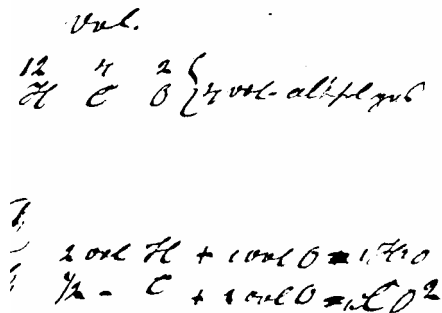 vol.
12 4 2
H C O } 4 vol.
2 vol H + 1 vol O = 1 H2O
1/2 - C + 1 vol O = 1 C O2